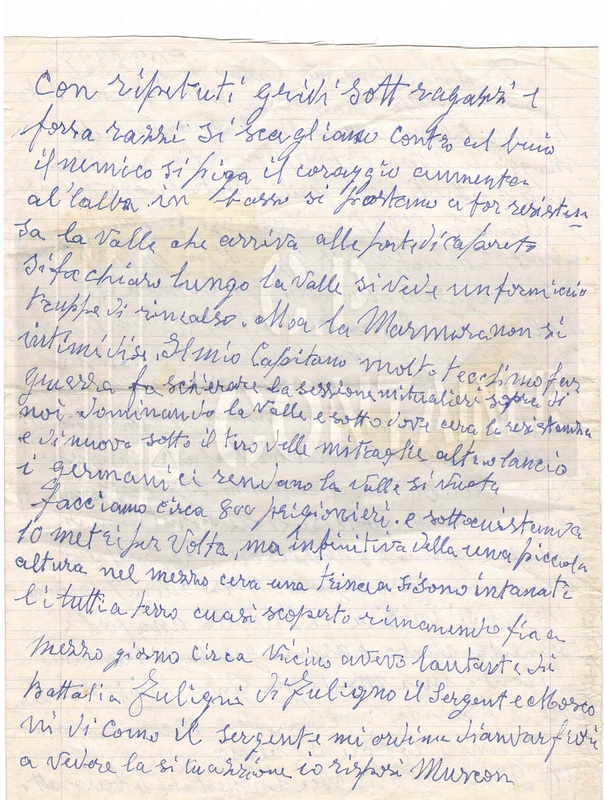 Con ripetuti gridi sotto ragazzi e
forza razzi si scagliamo contro al buio
il nemico si piga il coraggio aumenta
al'lalba in basso si postano a for resisten
sa la valle che arriva alle porte di caporeto
si fa chiaro lungo la valle si vede un formicaio
truppe di rincalso. Moa la Marmora non si
intimidise. Il mio Capitano molto
guerra fa schierare la sessione mitralieri sopra di
noi. dominando la valle e sotto dove cera la resistensa
e di nuovo sotto il tiro delle mitraglie altro lancio
i germanici rendano la valle si vuota
facciamo circa 800 prigionieri. e
10 metri per volta, ma infinitiva dalla una piccola
altura nel mezzo cera una trincea si sono intanati
li tutti a terra cuasi scoperto rimanendo fia a
mezzo giorno circa vicino avevo lautante di
Battalia Fuligni di Fuligno il Sergente Mosco
ni di Como il sergente mi ordina diandar
a vedere la situazzione io risposi Muscon